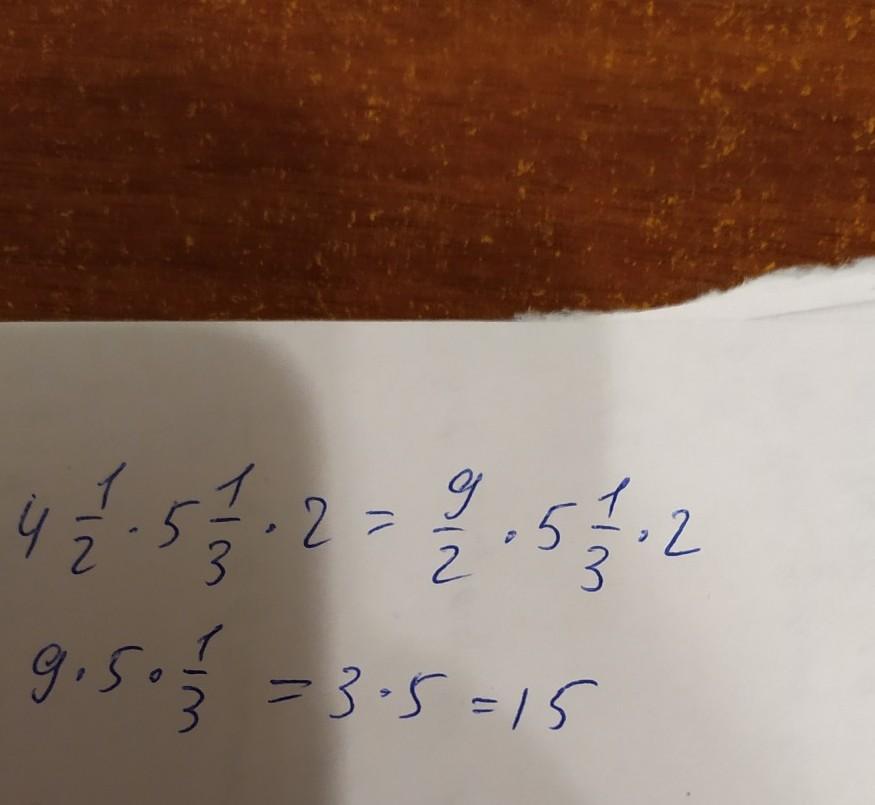 4 1/2 · 5 1/3 · 2 = 9/2 · 5 1/3 · 2
9 · 5 · 1/3 = 3 · 5 = 15